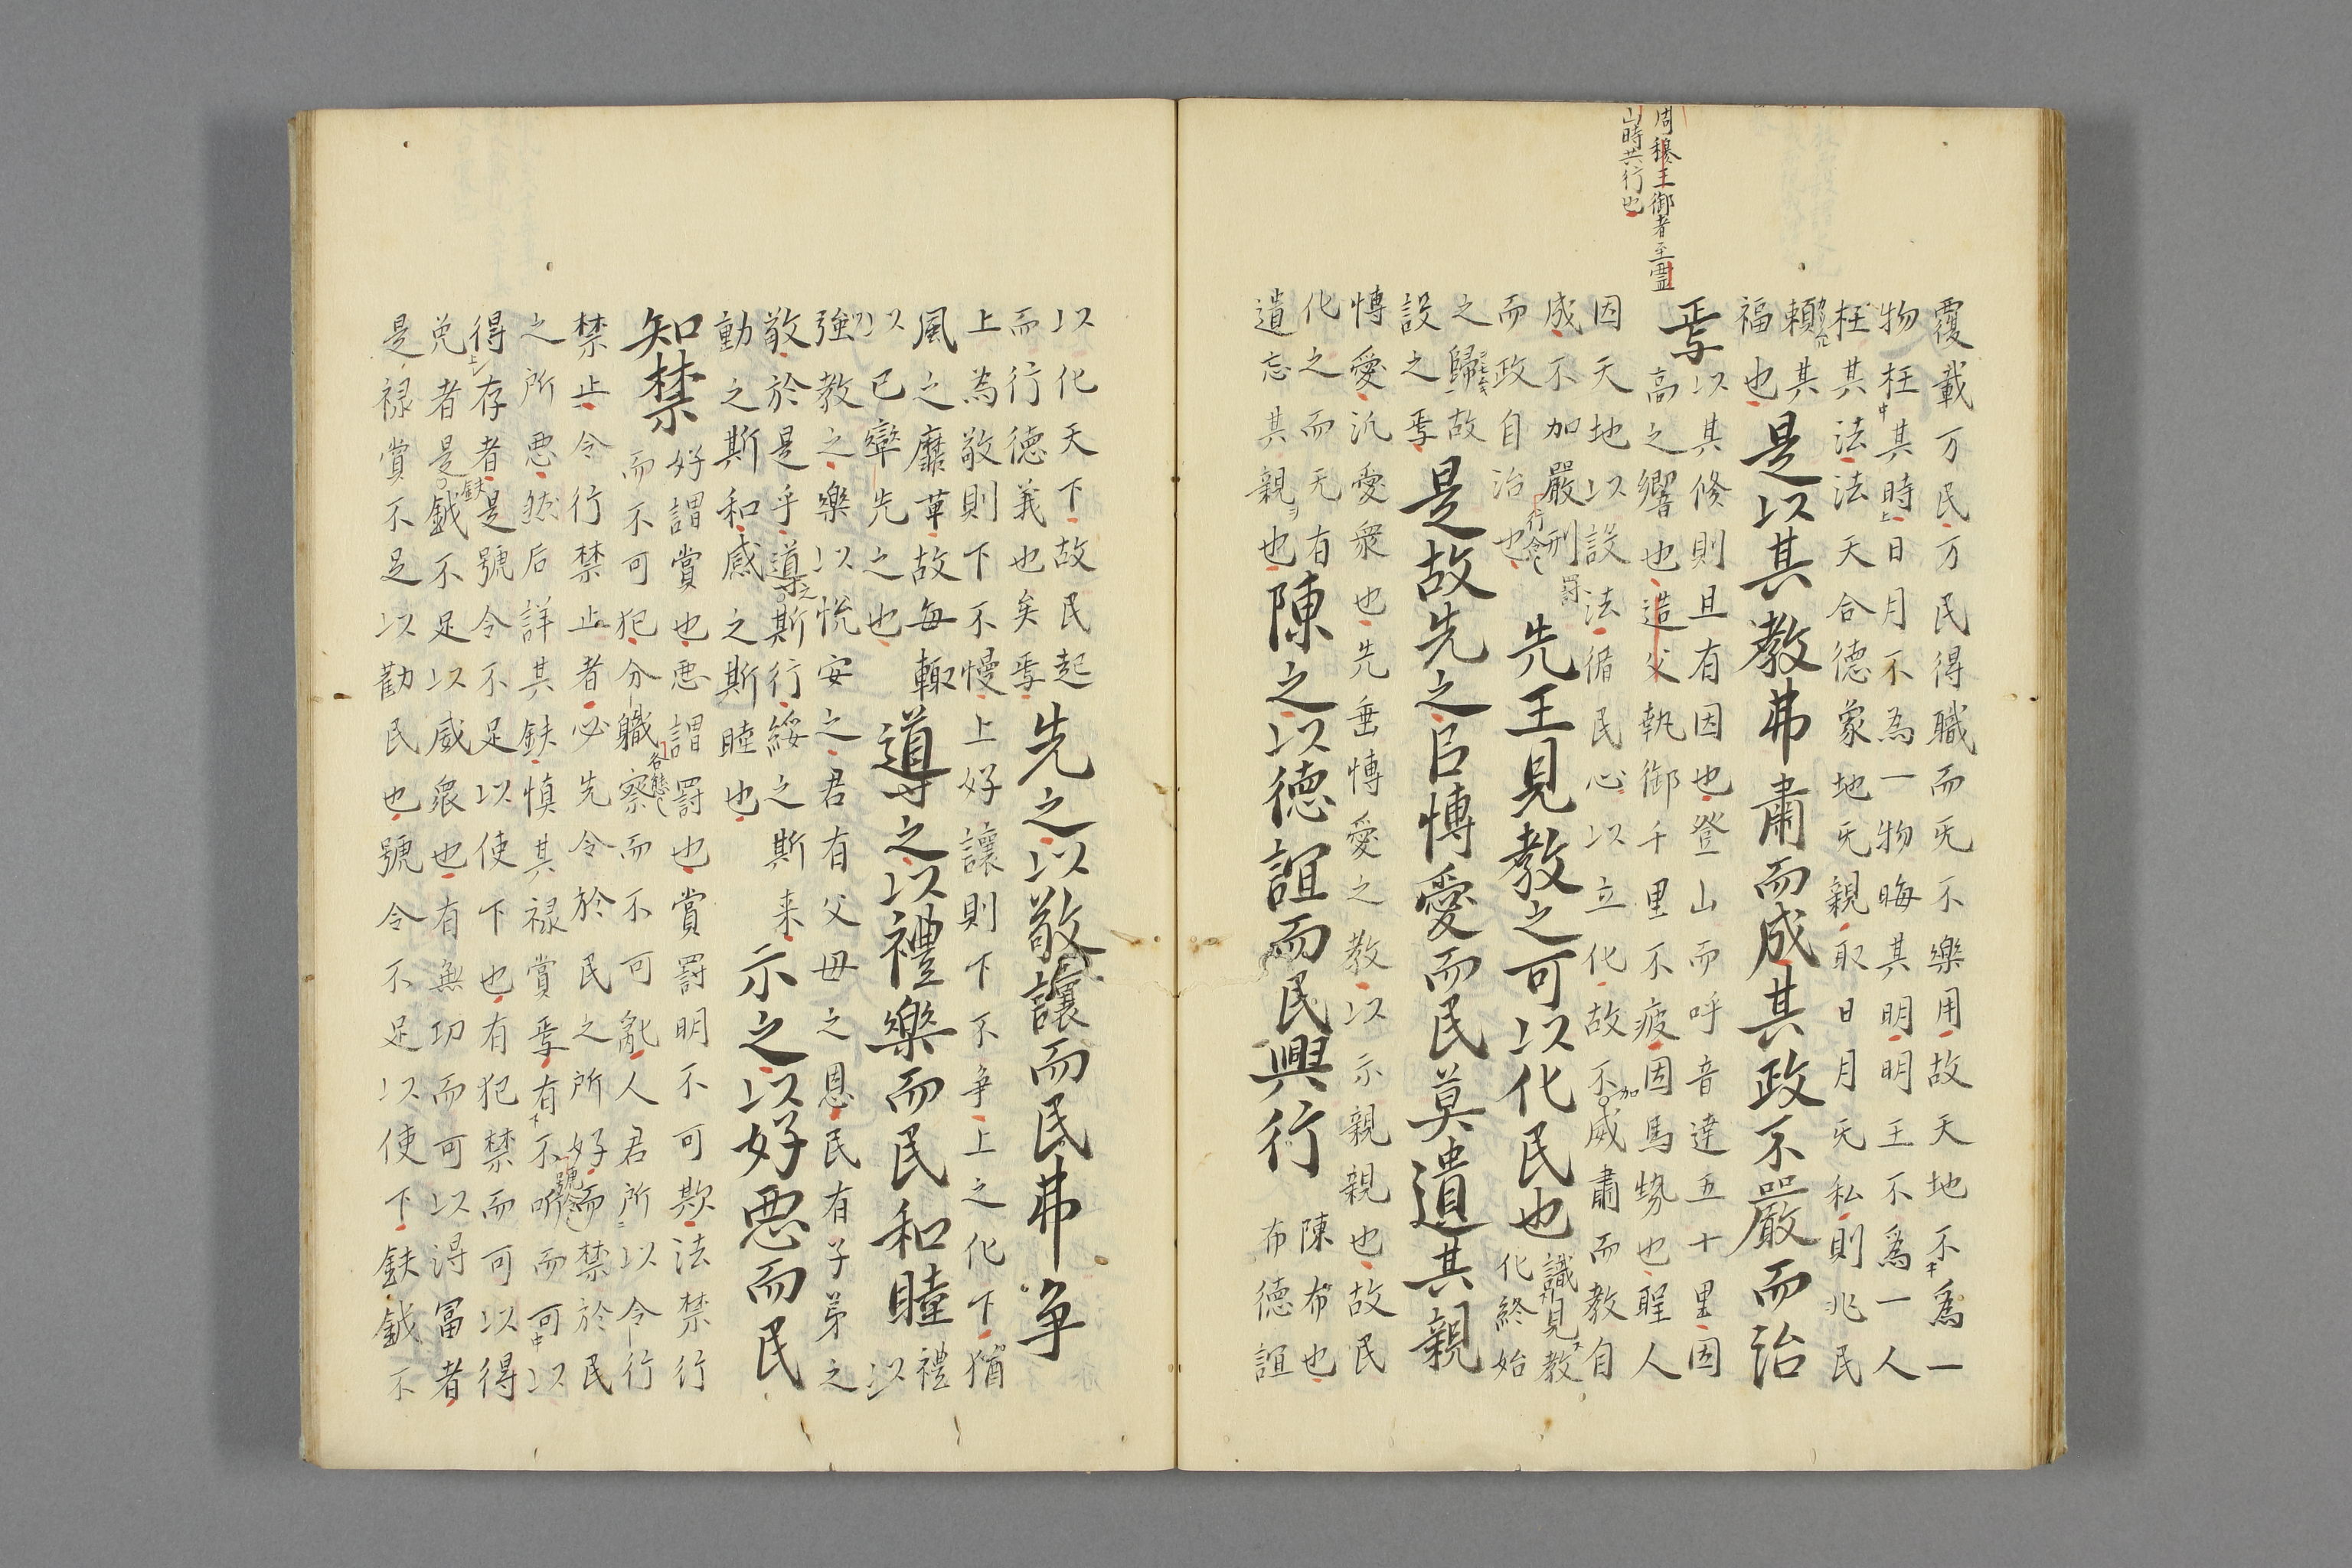 周穆王御者至霊
山時共行也
覆載万民万民得職而旡不樂用故天地不爲一
物枉其時日月不為一物晦其明明王不爲一人
枉其法法天合徳象地旡親取日月旡私則兆民
頼其
福也
是以其教弗肅而成其政不嚴而治
焉
以其修則且有因也登山而呼音達五十里因
高之響也造父執御千里不疲因馬勢也聖人
因天地以設法循民心以立化故不加威肅而教自
成不加嚴刑罰
而政自治也
先王見教之可以化民也
識見教
化終始
之歸故
設之焉
是故先之㠯博愛而民莫遺其親
博愛汎愛衆也先垂博愛之教以示親親也故民
化之而旡有
遺忘其親也
陳之以徳誼而民興行
陳布也
布徳誼
以化天下故民起
而行徳義也矣焉
先之以敬讓而民弗争
上為敬則下不慢上好讓則下不争上之化下猶
風之靡草故毎輙
以已率先之也
導之以禮樂而民和睦
禮
以
強教之樂以悦安之君有父母之恩民有子弟之
敬於是乎導之斯行綏之斯来
動之斯和感之斯睦也
示之以好悪而民
知禁
好謂賞也悪謂罰也賞罰明不可欺法禁行
而不可犯分職察而不可亂人君所以令行
禁止令行禁止者必先令於民之所好而禁於民
之所悪然后詳其鈇慎其禄賞焉有不听而可以
得存者是號令不足以使下也有犯禁而可以得
免者是鈇鉞不足以威衆也有無功而可以得冨者
是禄賞不足以勸民也號令不足以使下鈇鉞不